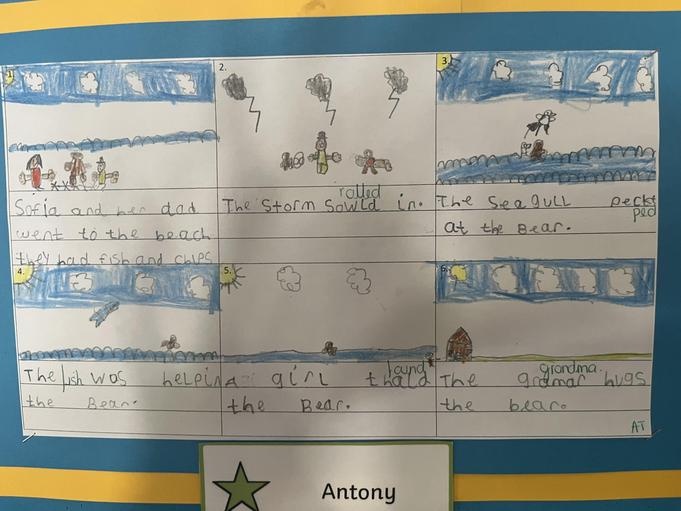 1.
Sofia and her dad
went to the beach
they had fish and chips
2.
rolled
The Storm Sowld in.
3.
The Seagull peckt
ped
at the Bear.
4.
The fish was helping
the Bear.
5.
a girl found
the Bear.
6.
grandma.
The grdmar hugs
the bear.
AT
Antony